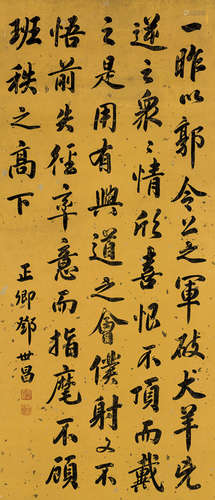 一昨以郭令公之軍破犬羊兇
逆之衆々情欣喜恨不頂而戴
之是用有興道之會僕射又不
悟前失徑率意而指麾不顧
班秩之高下
正卿鄧世昌